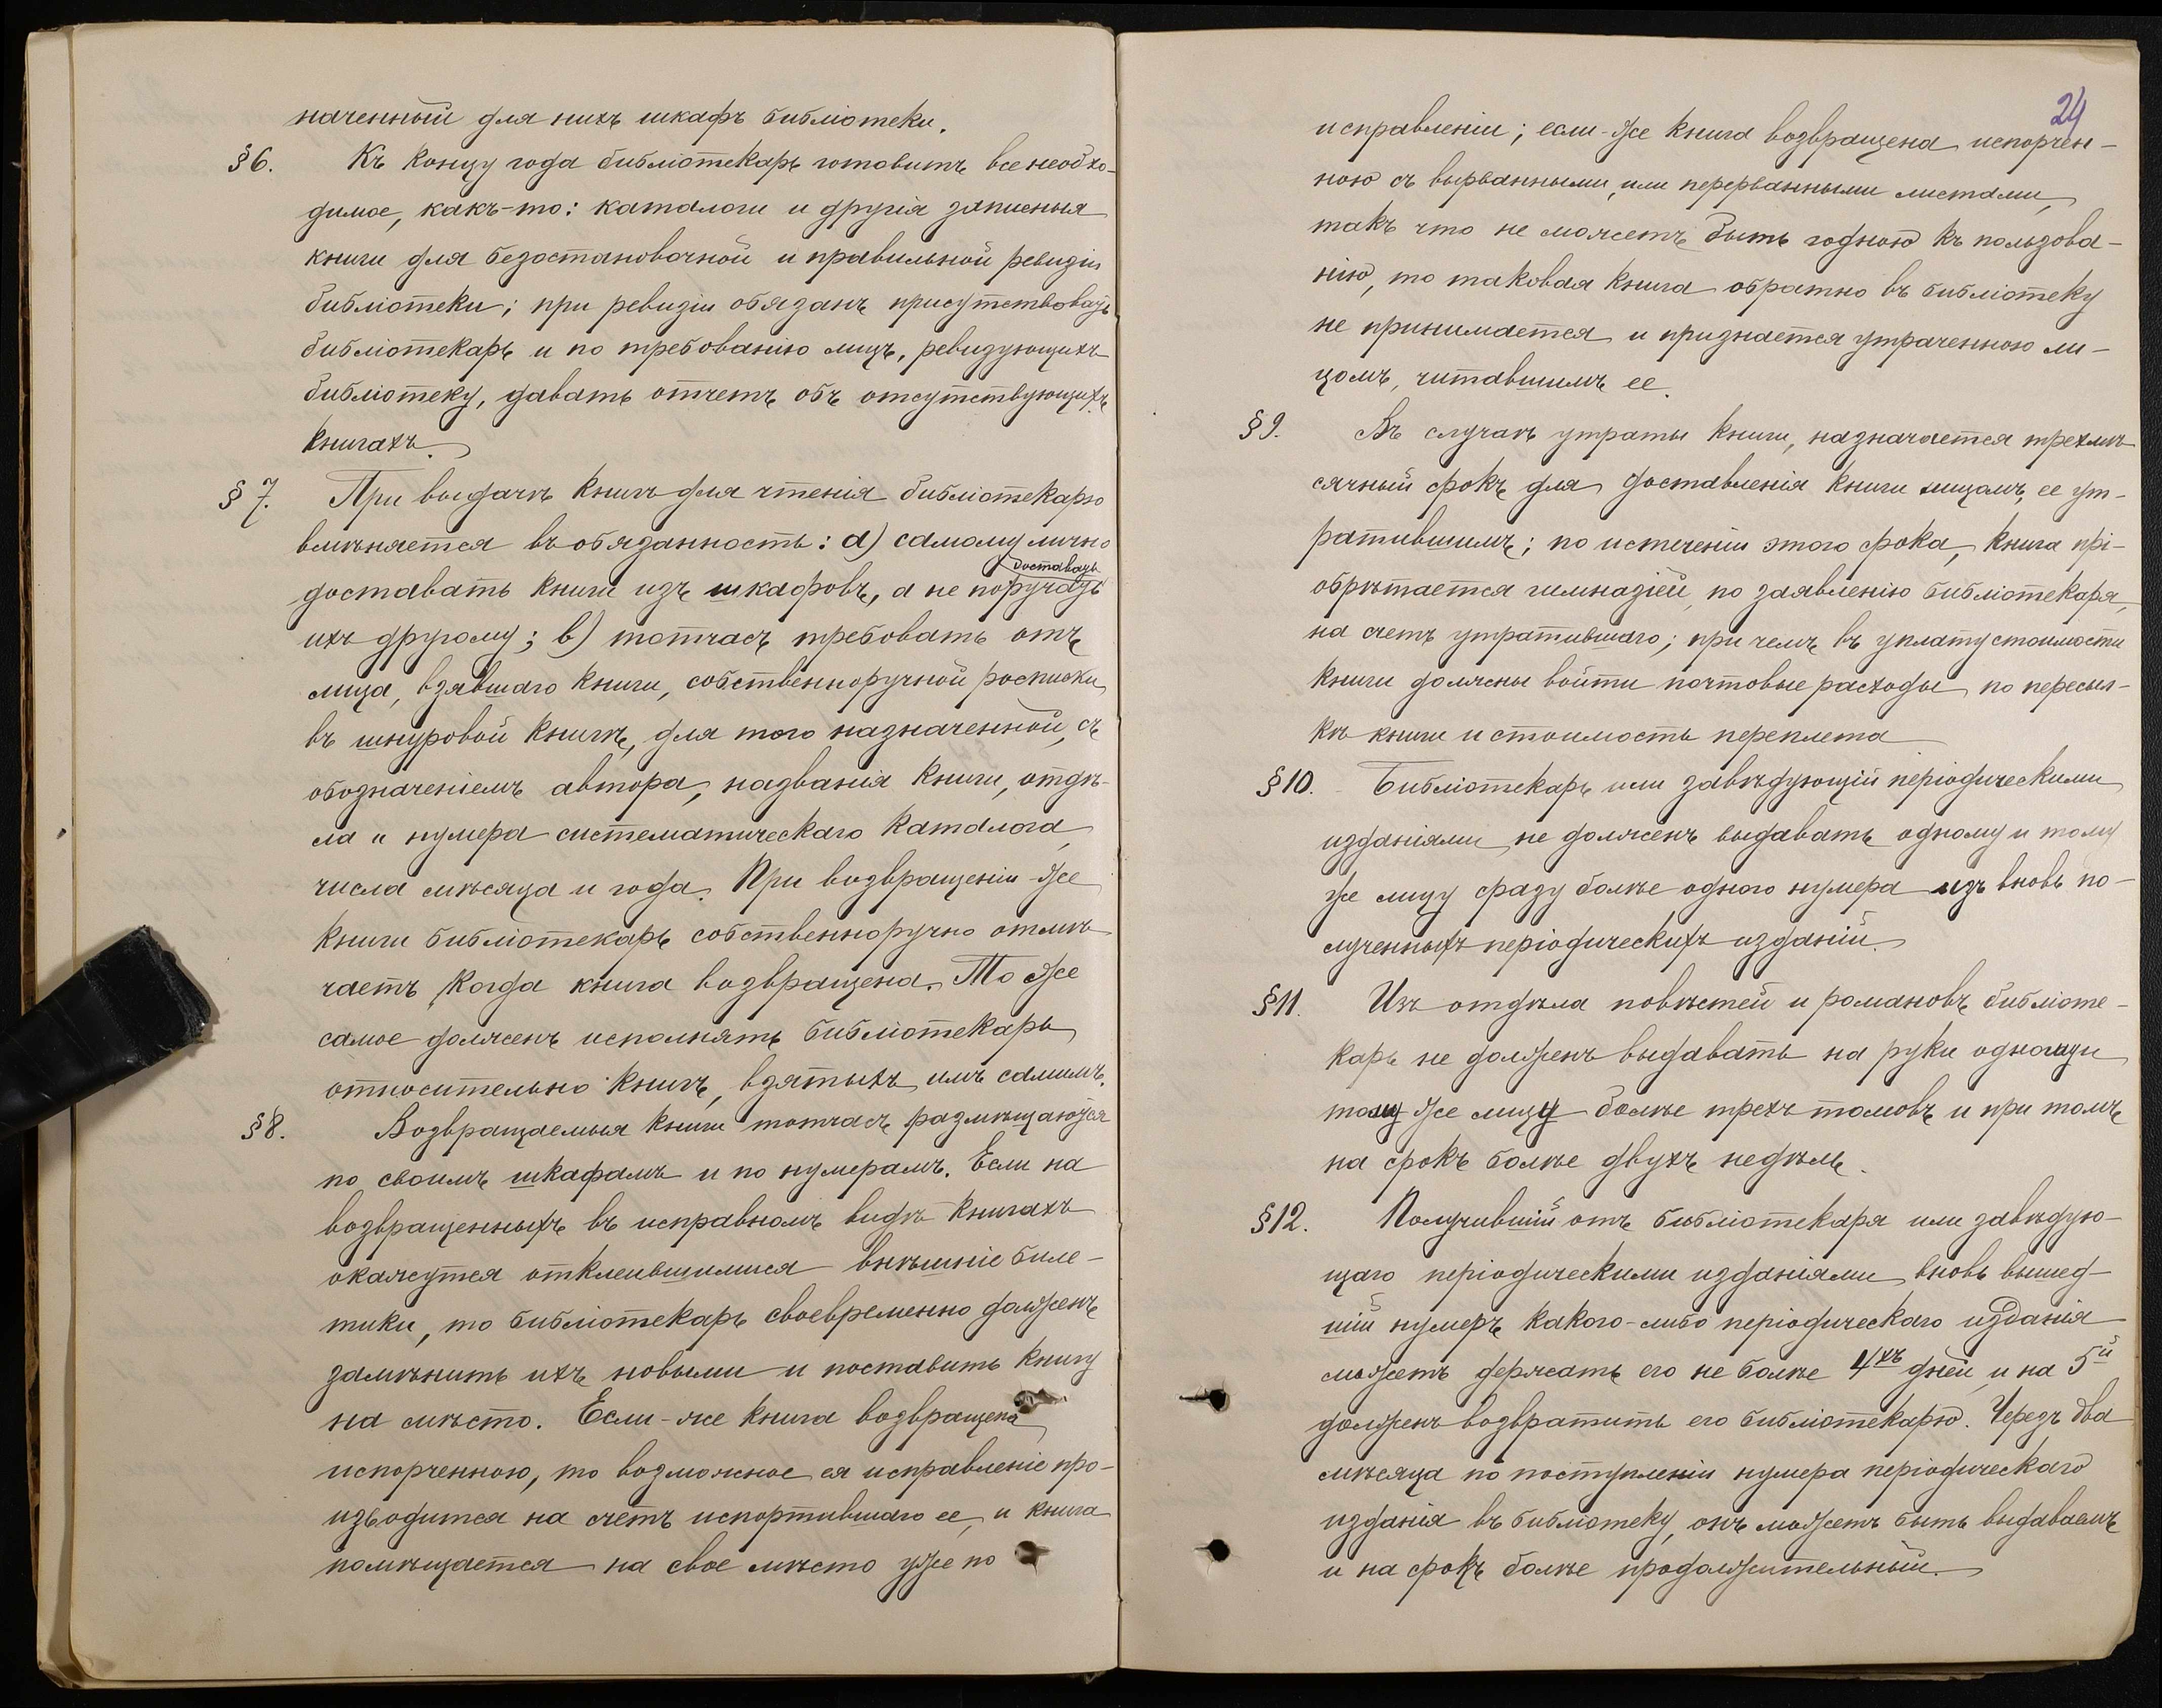 наченный для нихъ шкафъ библіотеки.
§6. Къ концу года библіотекарь готовитъ все необхо-
димое, какъ-то: каталоги и другія записныя
книги для безостановочной и правильной ревизіи
библіотеки; при ревизіи обязанъ присутствовать
библіотекарь и по требованію лицъ, ревизующихъ
библіотеку, давать отчетъ объ отсутствующихъ
книгахъ.
§7. При выдачѣ книгъ для чтенія библіотекарю
вмѣняется въ обязанность: а) самому лично
доставать
доставать книги изъ шкафовъ, а не поручать
ихъ другому; в) тотчасъ требовать отъ
лица, взявшаго книги, собственноручной росписки
въ шнуровой книгѣ, для того назначенной, съ
обозначеніемъ автора, названія книги, отдѣ-
ла и нумера систематическаго каталога,
числа мѣсяца и года. При возвращеніи-же
книги библіотекарь собственноручно отмѣ-
чаетъ, когда книга возвращена. То же
самое долженъ исполнять библіотекарь
относительно книгъ, взятыхъ имъ самимъ.
§8. Возвращаемыя книги тотчасъ размѣщаются
по своимъ шкафамъ и по нумерамъ. Если на
возвращенныхъ въ исправномъ видѣ книгахъ
окажутся отклеившимися внѣшніе биле-
тики, то библіотекарь своевременно долженъ
замѣнить ихъ новыми и поставить книгу
на мѣсто. Если-же книга возвращена
испорченною, то возможное ея исправленіе про-
изводится на счетъ испортившаго ее, и книга
помѣщается на свое мѣсто уже по
24
исправленіи; если-же книга возвращена испорчен-
ною съ вырванными, или перерванными листами,
такъ что не можетъ быть годною къ пользова-
нію, то таковая книга обратно въ библіотеку
не принимается и признается утраченною ли-
цомъ, читавшимъ ее.
§9. Въ случаѣ утраты книги, назначается трехмѣ-
сячный срокъ для доставленія книги лицамъ, ее ут-
ратившимъ; по истеченіи этого срока, книга прі-
обрѣтается гимназіей, по заявленію библіотекаря,
на счетъ утратившаго; при чемъ въ уплату стоимости
книги должны войти почтовые расходы по пересыл-
кѣ книги и стоимость переплета
§10. Библіотекарь или завѣдующій періодическими
изданіями не долженъ выдавать одному и тому
же лицу сразу болѣе одного нумера изъ вновь по-
лученныхъ періодическихъ изданій.
§11. Изъ отдѣла повѣстей и романовъ библіоте-
карь не долженъ выдавать на руки одному и
тому же лицу болѣе трехъ томовъ и при томъ
на срокъ болѣе двухъ недѣль.
§12. Получившій отъ библіотекаря или завѣдую-
щаго періодическими изданіями вновь вышед-
шій нумеръ какого-либо періодическаго изданія
можетъ держать его не болѣе 4хъ дней, и на 5й
долженъ возвратить его библіотекарю. Черезъ два
мѣсяца по поступленіи нумера періодическаго
изданія въ библіотеку, онъ можетъ быть выдаваемъ
и на срокъ болѣе продолжительный.